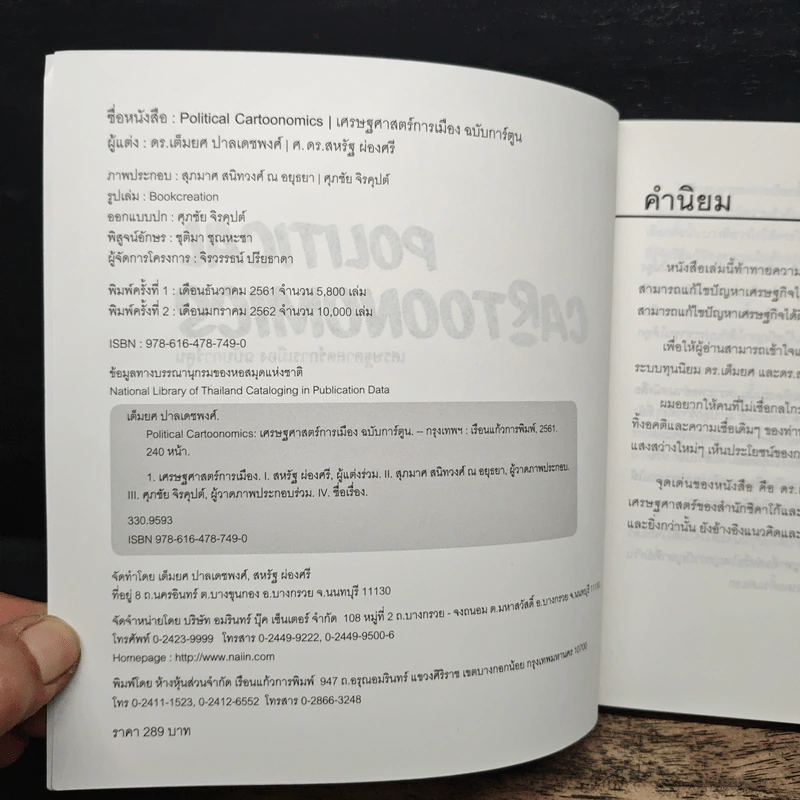 ชื่อหนังสือ : Political Cartoonomics | เศรษฐศาสตร์การเมือง ฉบับการ์ตูน
ผู้แต่ง : ดร.เต็มยศ ปาลเดชพงศ์ | ศ. ดร.สหรัฐ ผ่องศรี
ภาพประกอบ : สุภมาศ สนิทวงศ์ ณ อยุธยา | ศุภชัย จิรคุปต์
รูปเล่ม : Bookcreation
ออกแบบปก : ศุภชัย จิรคุปต์
พิสูจน์อักษร : ชุติมา ชุณหะชา
ผู้จัดการโครงการ : จิรวรรธน์ ปรียธาดา
พิมพ์ครั้งที่ 1 : เดือนธันวาคม 2561 จำนวน 5,800 เล่ม
พิมพ์ครั้งที่ 2 : เดือนมกราคม 2562 จำนวน 10,000 เล่ม
ISBN : 978-616-478-749-0
ข้อมูลทางบรรณานุกรมของหอสมุดแห่งชาติ
National Library of Thailand Cataloging in Publication Data
เต็มยศ ปาลเดชพงศ์.
Political Cartoonomics: เศรษฐศาสตร์การเมือง ฉบับการ์ตูน. -- กรุงเทพฯ : เรือนแก้วการพิมพ์, 2561.
240 หน้า.
1. เศรษฐศาสตร์การเมือง. I. สหรัฐ ผ่องศรี, ผู้แต่งร่วม. II. สุภมาศ สนิทวงศ์ ณ อยุธยา, ผู้วาดภาพประกอบ.
III. ศุภชัย จิรคุปต์, ผู้วาดภาพประกอบร่วม. IV. ชื่อเรื่อง.
330.9593
ISBN 978-616-478-749-0
จัดทำโดย เต็มยศ ปาลเดชพงศ์, สหรัฐ ผ่องศรี
ที่อยู่ 8 ถ.นครอินทร์ ต.บางขุนกอง อ.บางกรวย จ.นนทบุรี 11130
จัดจำหน่ายโดย บริษัท อมรินทร์ บุ๊ค เซ็นเตอร์ จำกัด 108 หมู่ที่ 2 ถ.บางกรวย - จงถนอม ต.มหาสวัสดิ์ อ.บางกรวย จ.นนทบุรี 11130
โทรศัพท์ 0-2423-9999 โทรสาร 0-2449-9222, 0-2449-9500-6
Homepage : http://www.naiin.com
พิมพ์โดย ห้างหุ้นส่วนจำกัด เรือนแก้วการพิมพ์ 947 ถ.อรุณอมรินทร์ แขวงศิริราช เขตบางกอกน้อย กรุงเทพมหานคร 10700
โทร 0-2411-1523, 0-2412-6552 โทรสาร 0-2866-3248
ราคา 289 บาท
คำนิยม
หนังสือเล่มนี้ท้าทายความ
สามารถแก้ไขปัญหาเศรษฐกิจ
สามารถแก้ไขปัญหาเศรษฐกิจได้
เพื่อให้ผู้อ่านสามารถเข้าใจ
ระบบทุนนิยม ดร.เต็มยศ และดร.
ผมอยากให้คนที่ไม่เชื่อกลไก
ทิ้งอคติและความเชื่อเดิมๆ ของท่าน
แสงสว่างใหม่ๆ เห็นประโยชน์ของ
จุดเด่นของหนังสือ คือ ดร.
เศรษฐศาสตร์ของสำนักชิคาโก้และ
และยิ่งกว่านั้น ยังอ้างอิงแนวคิดและ